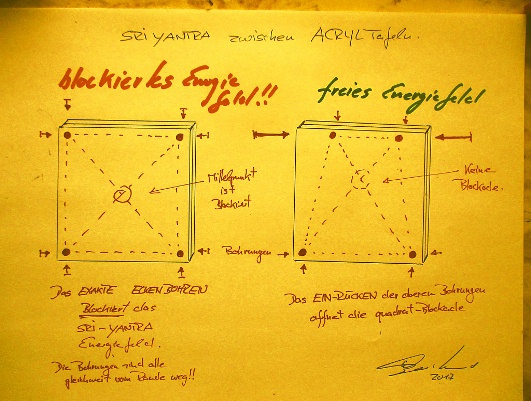 SRI YANTRA zwischen ACRYL Tafeln.
blockiertes Energie
feld!!
freies Energiefeld
Mittelpunkt
ist
Blockiert
Keine
Blockade.
Bohrungen
Das EXAKTE ECKENBOHREN
Blockiert das
SRI-YANTRA
Energiefeld.
Die Bohrungen sind alle
gleichweit vom Rande weg!!
Das EIN-RÜCKEN der oberen Bohrungen
öffnet die quadrat-Blockade
2017